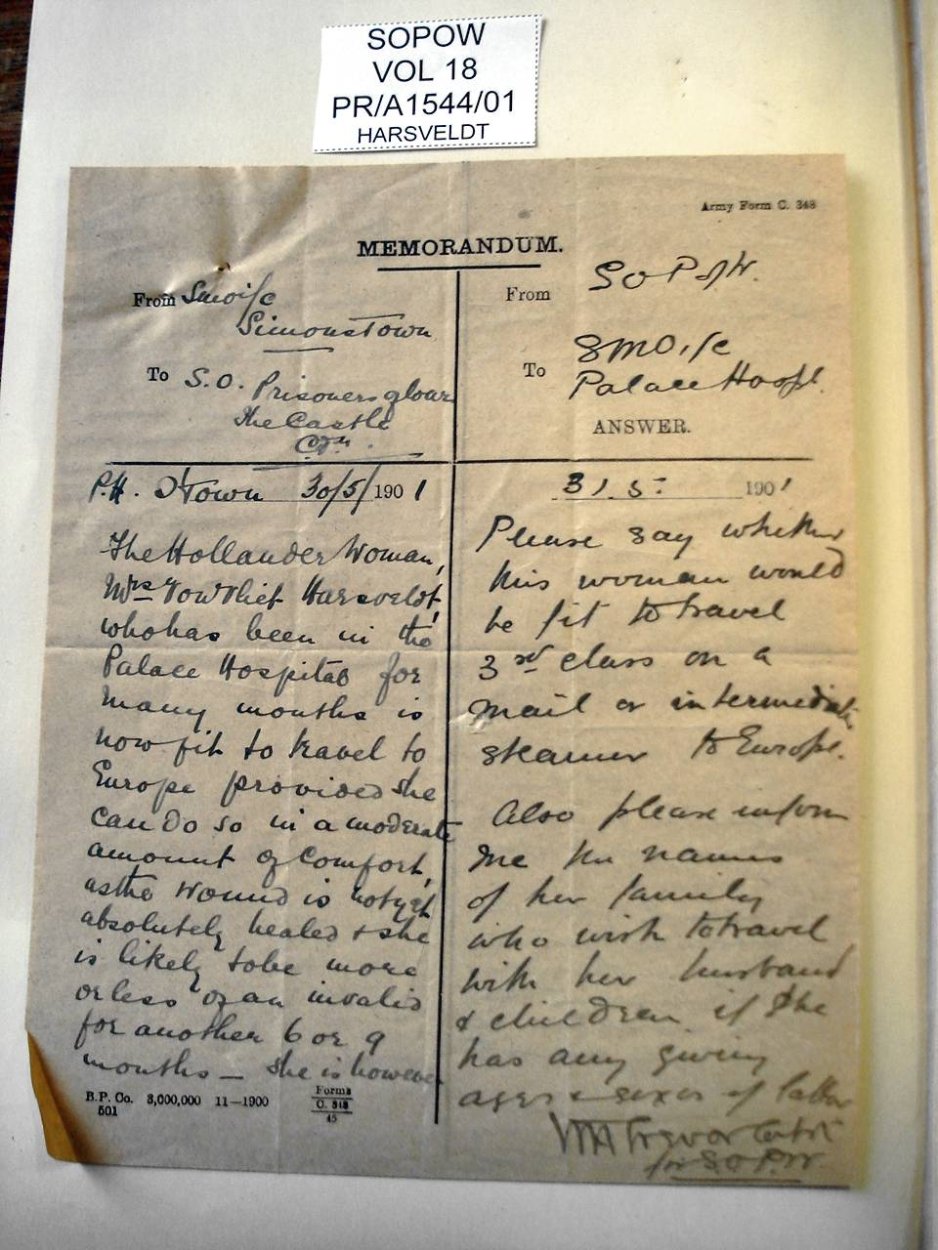 SOPOW
VOL 18
PR/A1544/01
HARSVELDT
Army Form C. 348
MEMORANDUM.
From Smoi/c
Simonstown
To S.O. Prisoners of War
The Castle
C.Tn.
P.H. S'Town 30/5/1901
The Hollander Woman,
Mrs Harsveldt,
who has been in the
Palace Hospital for
many months is
now fit to travel to
Europe provided she
can do so in a moderate
amount of comfort,
as the wound is not yet
absolutely healed & she
is likely to be more
or less of an invalid
for another 6 or 9
months — She is however
B.P. Co. 3,000,000 11—1900
501
Forms
C. 348
45
From S O P of W.
To SMO i/c
Palace Hospl.
ANSWER.
31. 5. 1901
Please say whether
this woman would
be fit to travel
3rd class on a
mail or intermediate
steamer to Europe.
Also please inform
me the names
of her family
who wish to travel
with her husband
& children if she
has any giving
ages & sexes of latter
Trevor
for S.O.P.W.